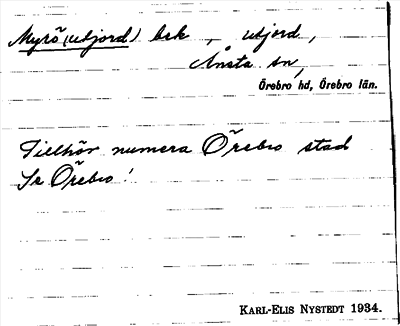 Myrö (utjord) bek , utjord,
Ånsta sn,
Örebro hd, Örebro län.
Tillhör numera Örebro stad
Se Örebro!
KARL-ELIS NYSTEDT 1934.